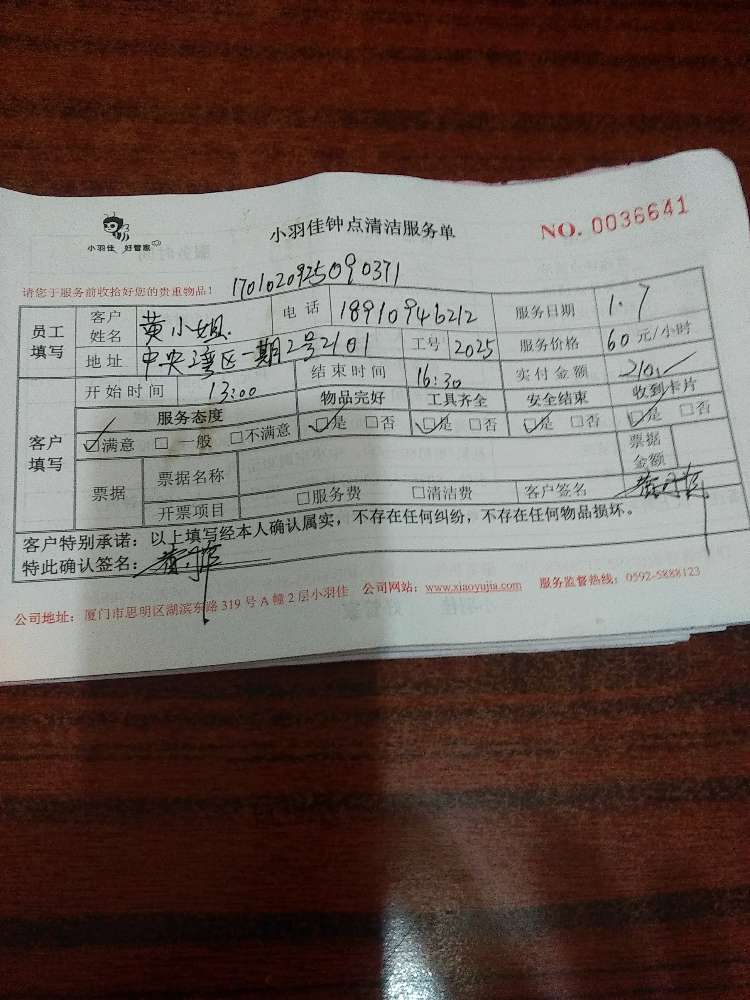 小羽佳 好管家
小羽佳钟点清洁服务单
NO. 0036641
请您于服务前收拾好您的贵重物品!
1701020925090371
员工填写 客户姓名 黄小姐 电话 18910946212 服务日期 1.7
地址 中央湾区一期2号2101 工号 2025 服务价格 60元/小时
客户填写 开始时间 13:00 结束时间 16:30 实付金额 210
服务态度 物品完好 工具齐全 安全结束 收到卡片
☑满意 □一般 □不满意 ☑是 □否 ☑是 □否 ☑是 □否 ☑是 □否
票据 票据名称 票据金额
开票项目 □服务费 □清洁费 客户签名
客户特别承诺:以上填写经本人确认属实,不存在任何纠纷,不存在任何物品损坏。
特此确认签名:
公司地址:厦门市思明区湖滨东路319号A幢2层小羽佳 公司网站:www.xiaoyujia.com 服务监督热线:0592-5888123